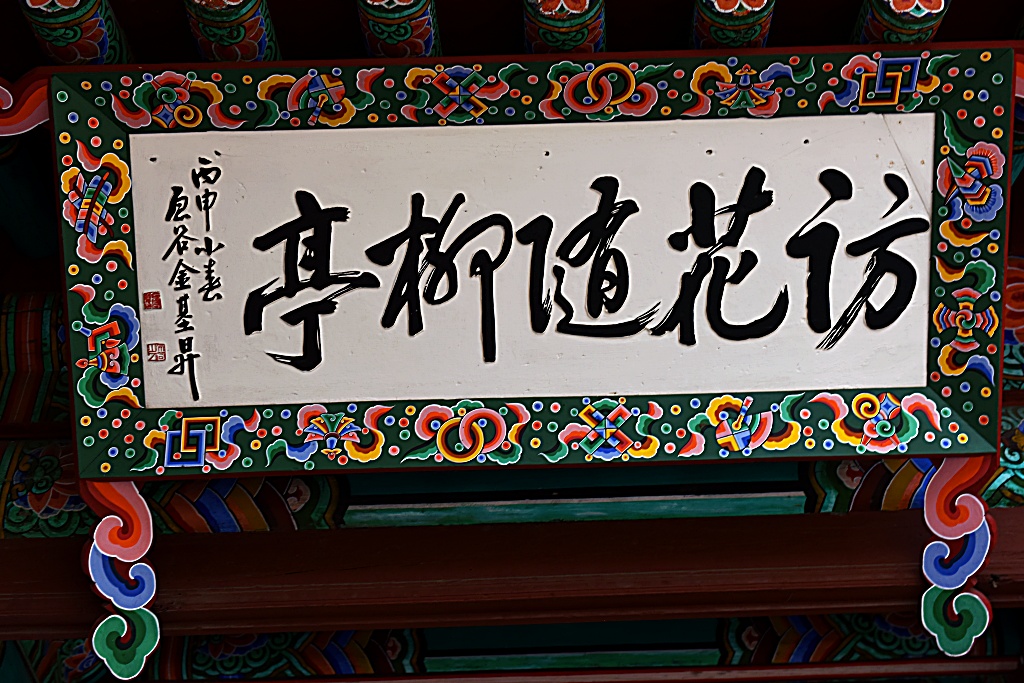 訪花随柳亭
丙申小春
原谷金基昇